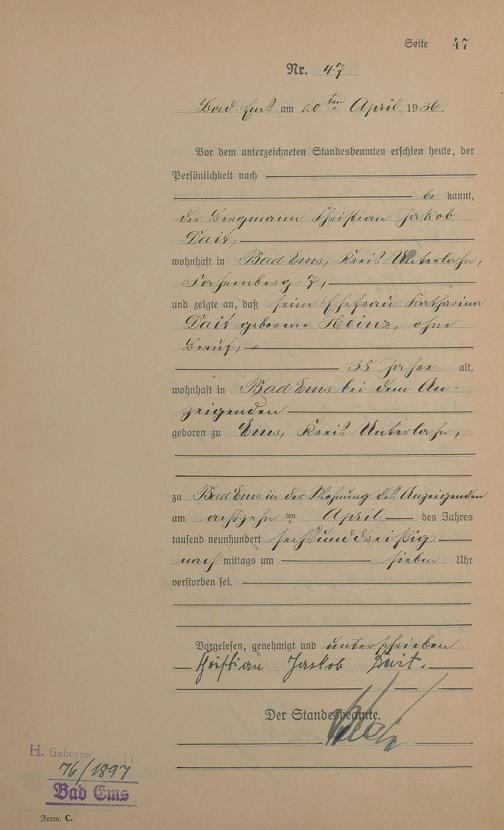 Seite 47
Nr. 47
Bad Ems am 20ten April 1936.
Vor dem unterzeichneten Standesbeamten erschien heute, der
Persönlichkeit nach
be kannt,
der Bergmann Christian Jakob
Dait,
wohnhaft in Bad Ems, Kreis Unterlahn,
7,
und zeigte an, daß seine Ehefrau Katharina
Dait geborene Heinz, ohne
Beruf,
35 Jahre alt,
wohnhaft in Bad Ems bei dem An-
zeigenden
geboren zu Ems, Kreis Unterlahn,
zu Bad Ems in der Wohnung des Anzeigenden
am achtzehn ten April des Jahres
tausend neunhundert sechsunddreißig
nach mittags um sieben Uhr
verstorben sei.
Vorgelesen, genehmigt und unterschrieben
Christian Jakob Dait.
Der Standesbeamte.
H. Geboren
76/1897
Bad Ems
Form. C.